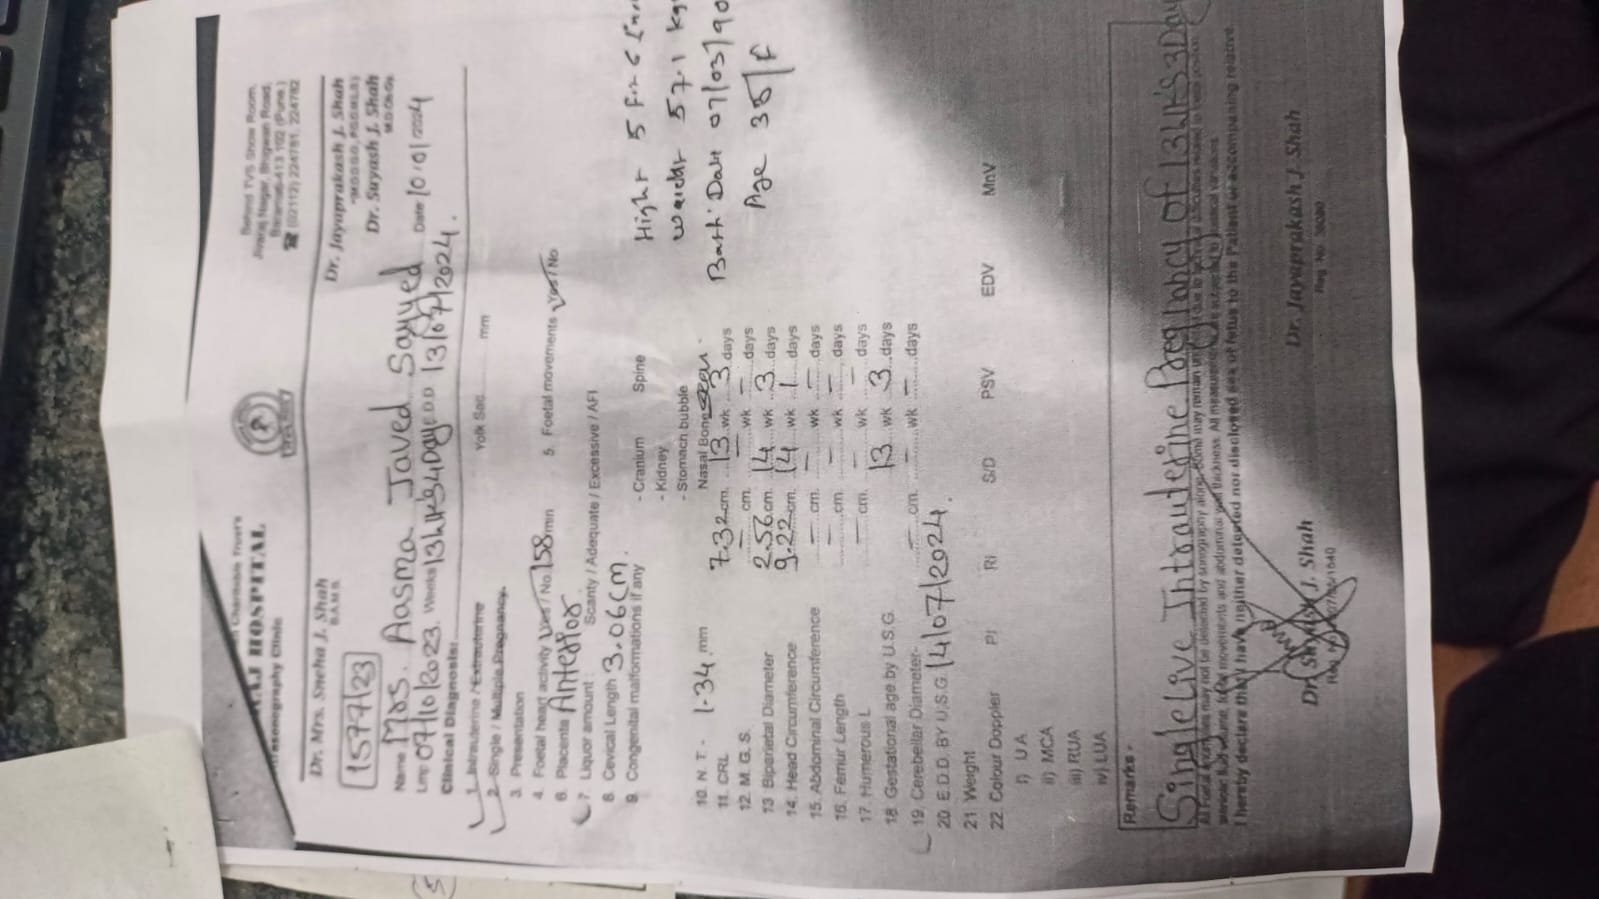 HOSPITAL
Sonography Clinic
Behind TVS Show Room,
Jivaraj Nagar, Bhigwan Road,
Baramati-413 102 (Pune)
☎ (02112) 224781, 224782
Dr. Mrs. Sneha J. Shah
B.A.M.S.
Dr. Jayaprakash J. Shah
Dr. Suyash J. Shah
1577/23
Name Mrs. Aasma Javed Sayyed Date 10/01/2024
LMP 07/10/2023. Weeks 13wk's 4Day EDD 13/07/2024.
Clinical Diagnosis:
1. Intrauterine / Extrauterine Yolk Sac mm
2. Single / Multiple Pregnancy.
3. Presentation
4. Foetal heart activity Yes / No 158mn 5. Foetal movements Yes / No
6. Placenta Anterior
7. Liquor amount : Scanty / Adequate / Excessive / AFI
8. Cevical Length 3.06cm.
9. Congenital malformations if any - Cranium Spine
- Kidney
- Stomach bubble
Hight 5 Fit 6
Waight 57.1 kg
Barth Dat 07/03/90
Age 35/f
10. N. T. - 1.34 mm Nasal Bone seen.
11. CRL 7.32 cm. 13 wk 3 days
12. M. G. S. — cm. — wk — days
13 Biparietal Diameter 2.56 cm. 14 wk 3 days
14. Head Circumference 9.22 cm. 14 wk 1 days
15. Abdominal Circumference — cm. — wk — days
16. Femur Length — cm. — wk — days
17. Humerous L — cm. — wk — days
18. Gestational age by U.S.G. 13 wk 3 days
19. Cerebellar Diameter- — cm. — wk — days
20. E.D.D. BY U.S.G. 14/07/2024.
21 Weight
22. Colour Doppler PI RI S/D PSV EDV MnV
i) U A
ii) MCA
iii) RUA
iv) LUA
Remarks -
Single Live Intrauterine Pregnancy of 13wk's 3Day
I hereby declare that I have neither detected nor disclosed sex of fetus to the Patient or accompaning relative.
Dr. Suyash J. Shah
Dr. Jayaprakash J. Shah